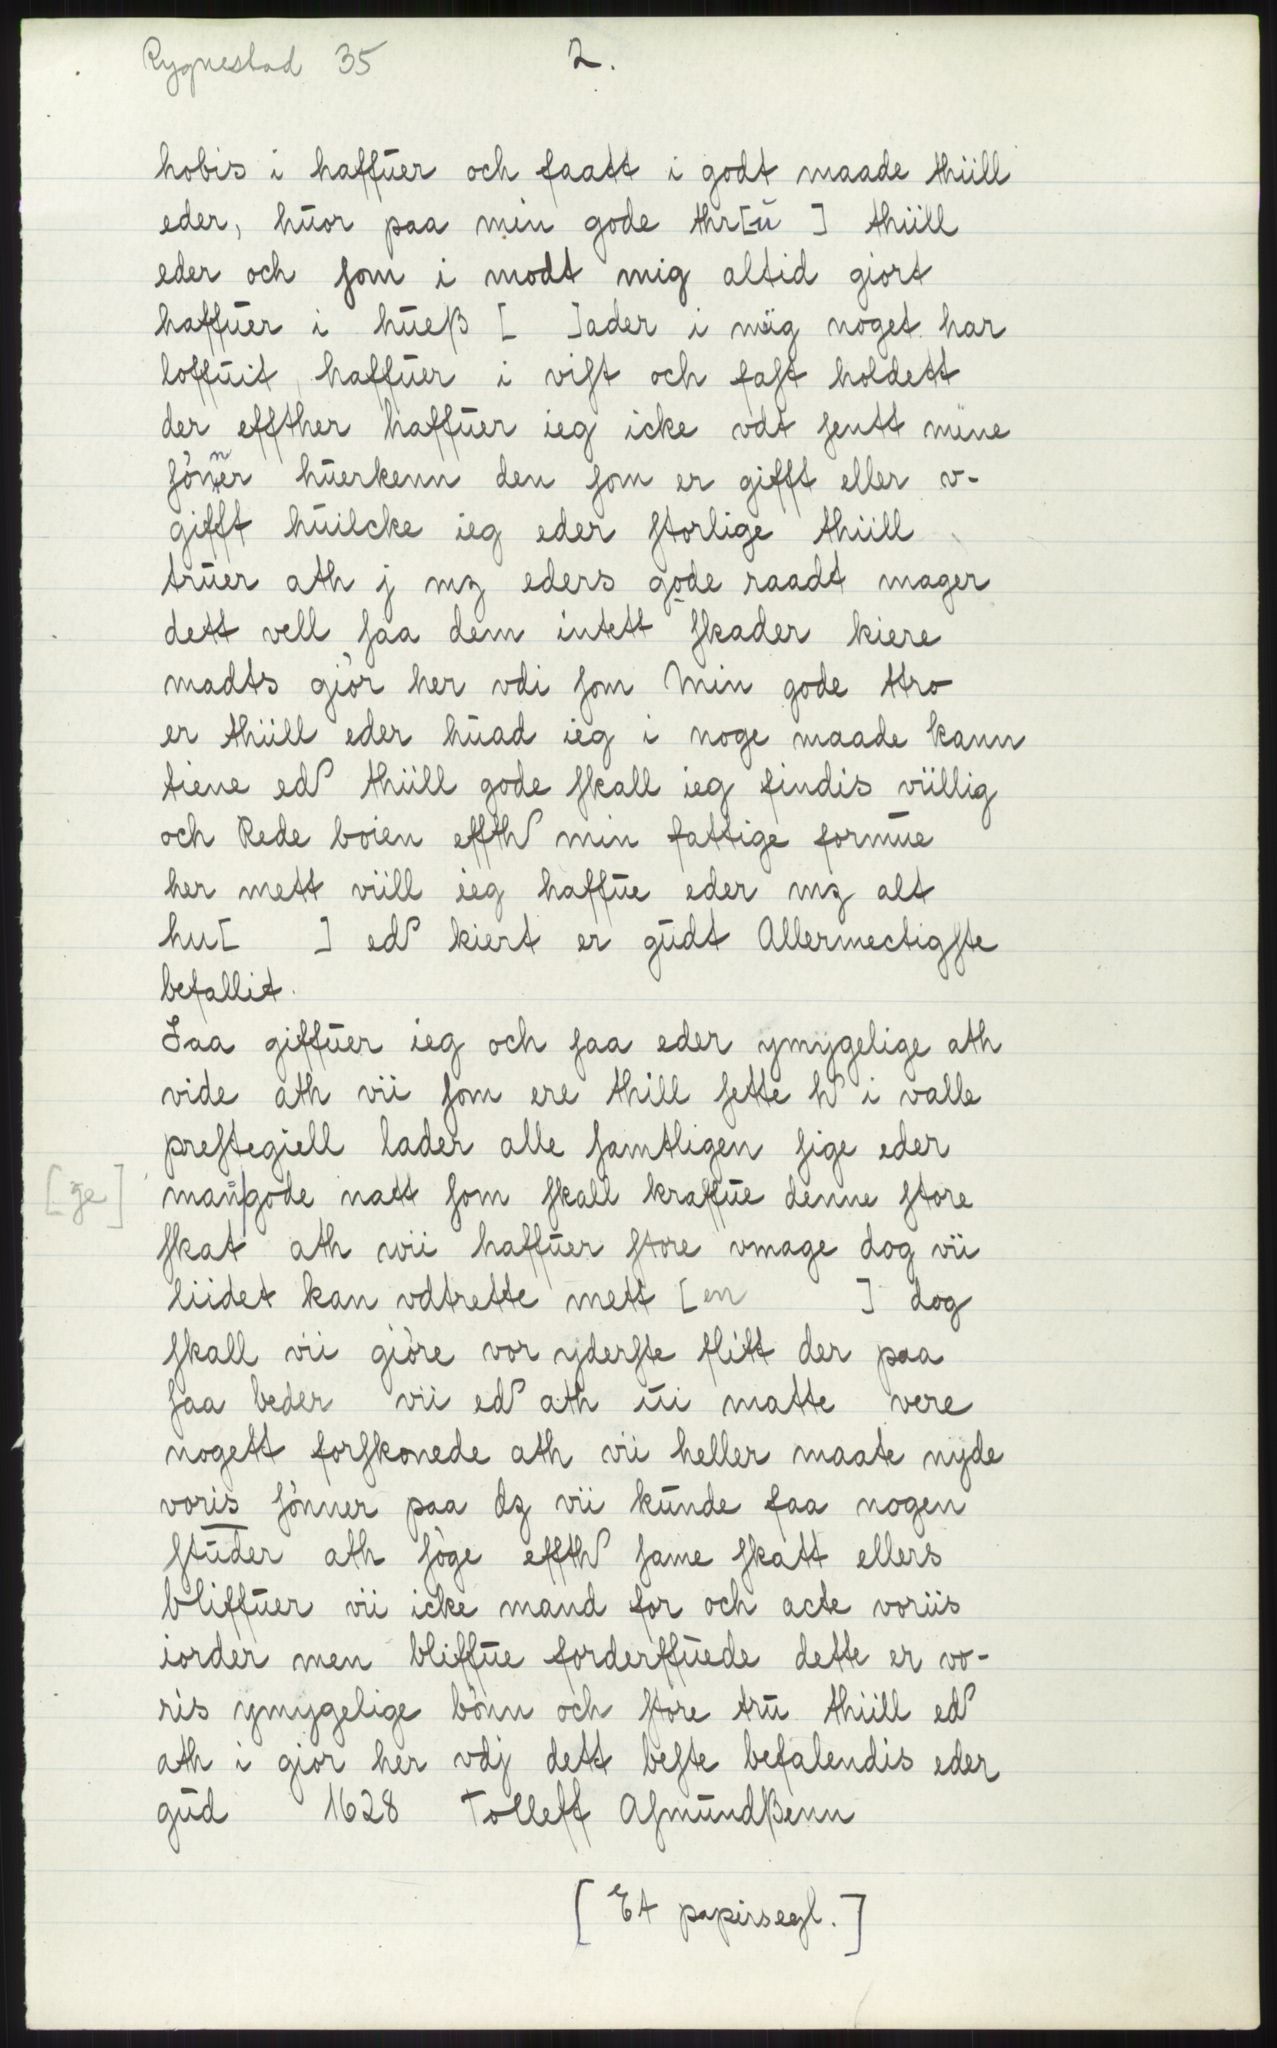 Rygnestad 35 2.
hobis i haffuer och faatt i godt maade thiill
eder, huor paa min gode thr[ŭ ] thiill
eder och som i modt mig altid giort
haffuer i hueß [ ]ader i miig noget har
loffuit haffuer i vist och fast holdett
der effther haffuer ieg icke vdt sentt miine
sönner huerkenn den som er gifft eller v-
gifft huilcke ieg eder storlige thiill
truer ath j mz eders gode raadt mager
dett vell saa dem intett skader kiere
madts giör her vdi som Min gode ttro
er thiill eder huad ieg i noge maade kann
tiene ed thiill gode skall ieg findis viillig
och Rede boien effth min fattige formue
her mett viill ieg haffue eder mz alt
hu[ ] ed kiert er gudt Allermectigste
befallit.
Saa giffuer ieg och saa eder ymygelige ath
vide ath vii som ere thill sette h i valle
prestegiell lader alle samtligen sige eder
[ge] man|gode natt som skall kraffue denne store
skat ath wii haffuer store vmage dog vii
liidet kan vdtrette mett [en ] dog
skall vii giöre vor yderste flitt der paa
saa beder vii ed ath ui matte vere
nogett forskonede ath vii heller maate nyde
voris sönner paa dz vii kunde faa nogen
studer ath söge effth same skatt ellers
bliffuer vii icke mand for och acte voriis
iorder men bliffue forderffuede dette er vo-
ris ymygelige bönn och store tru thiill ed
ath i giör her vdj dett beste befalendis eder
gud 1628 Tolleff AsmundBenn
[Et papirsegl.]